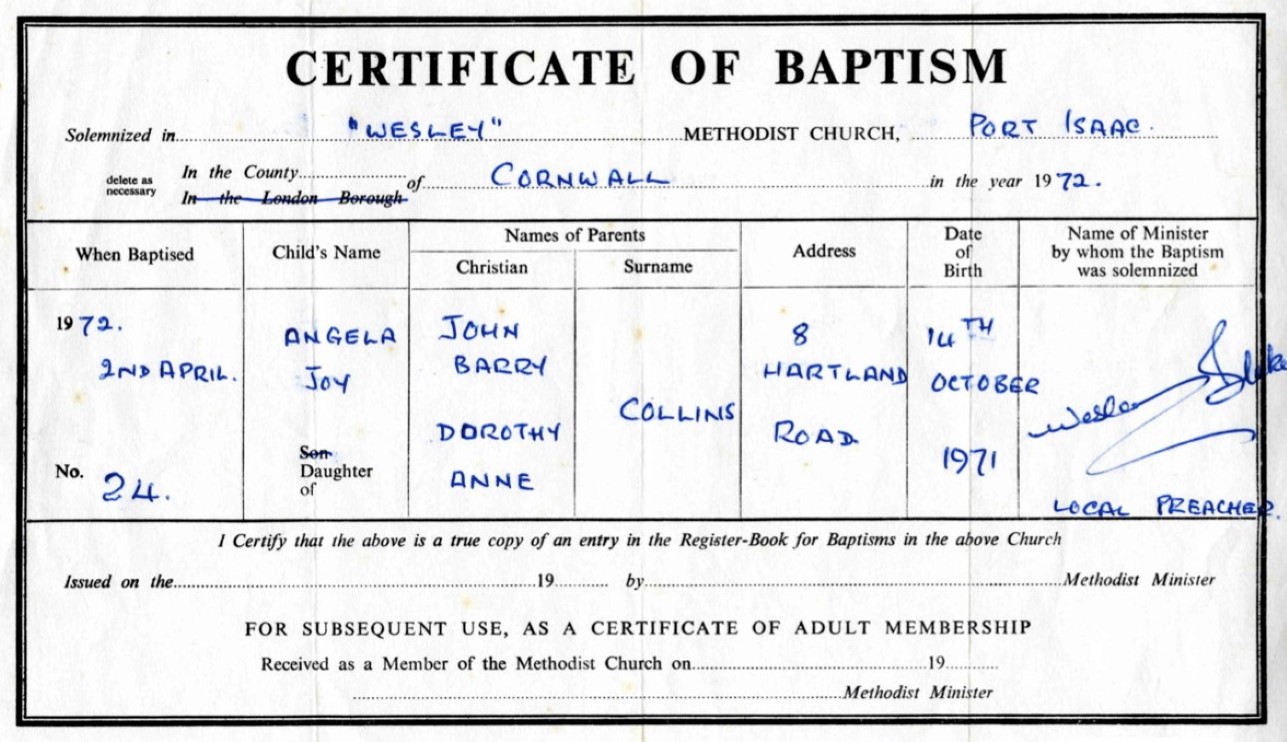 CERTIFICATE OF BAPTISM
Solemnized in "WESLEY" METHODIST CHURCH, PORT ISAAC.
delete as necessary
In the County
In the London Borough
of CORNWALL in the year 1972.
When Baptised
Child's Name
Names of Parents
Christian
Surname
Address
Date of Birth
Name of Minister by whom the Baptism was solemnized
1972.
2ND APRIL.
No. 24.
ANGELA
JOY
Son
Daughter
of
JOHN
BARRY
DOROTHY
ANNE
COLLINS
8
HARTLAND
ROAD
14TH
OCTOBER
1971
Wesley Blake
LOCAL PREACHER.
I Certify that the above is a true copy of an entry in the Register-Book for Baptisms in the above Church
Issued on the 19 by Methodist Minister
FOR SUBSEQUENT USE, AS A CERTIFICATE OF ADULT MEMBERSHIP
Received as a Member of the Methodist Church on 19
Methodist Minister